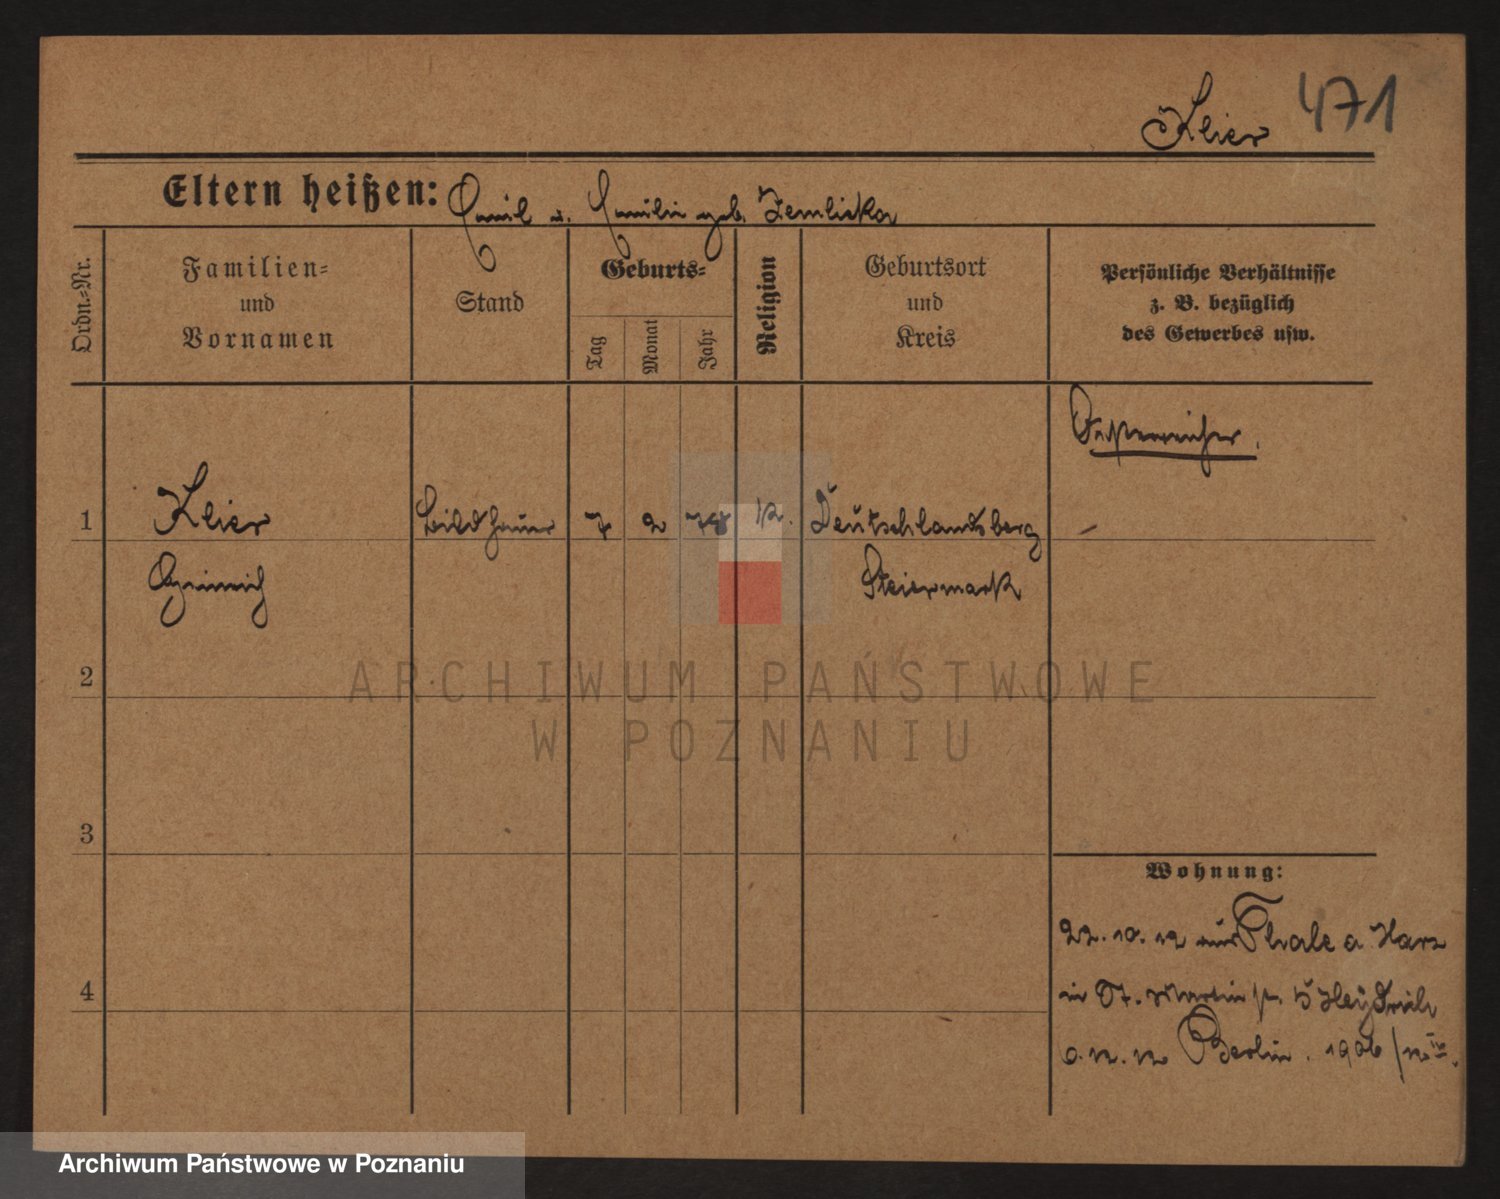 Klier 471
Eltern heißen: Emil u. Emilie geb. Zemlicka
Ordn.=Nr.
Familien=
und
Vornamen
Stand
Geburts=
Tag
Monat
Jahr
Religion
Geburtsort
und
Kreis
Persönliche Verhältnisse
z. B. bezüglich
des Gewerbes usw.
Oesterreicher.
1 Klier Bildhauer 7 2 78 k. Deutschlandsberg –
Heinrich Steiermark
2
3
4
Wohnung:
22.10.12 aus Thale a Harz
in St. Martinstr. 5 Heydrich
6.12.12 Berlin. 1906/12
ARCHIWUM PAŃSTWOWE
W POZNANIU
Archiwum Państwowe w Poznaniu